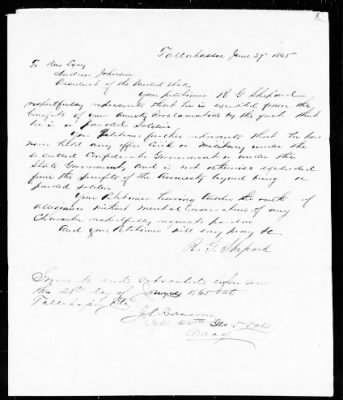 Tallahassee June 27 1865
To His Excy
Andrew Johnson
President of the United States
Your petitioner R G Shepard
respectfully represents that he is excluded from the
benefits of your Amnesty Proclamation by the fact that
he is a paroled soldier
Your Petitioner further represents that he has
never held any office civil or military under the
Confederate Government or under the
State Government, and is not otherwise excluded
from the benefits of the Amnesty beyond being a
paroled soldier
Your Petitioner having taken the oath of
allegiance without mental reservation of any
Character respectfully requests pardon
And your Petitioner will ever pray &c
R. G. Shepard
Sworn to and subscribed before me
this 28th day of 1865 at
Tallahassee Fla